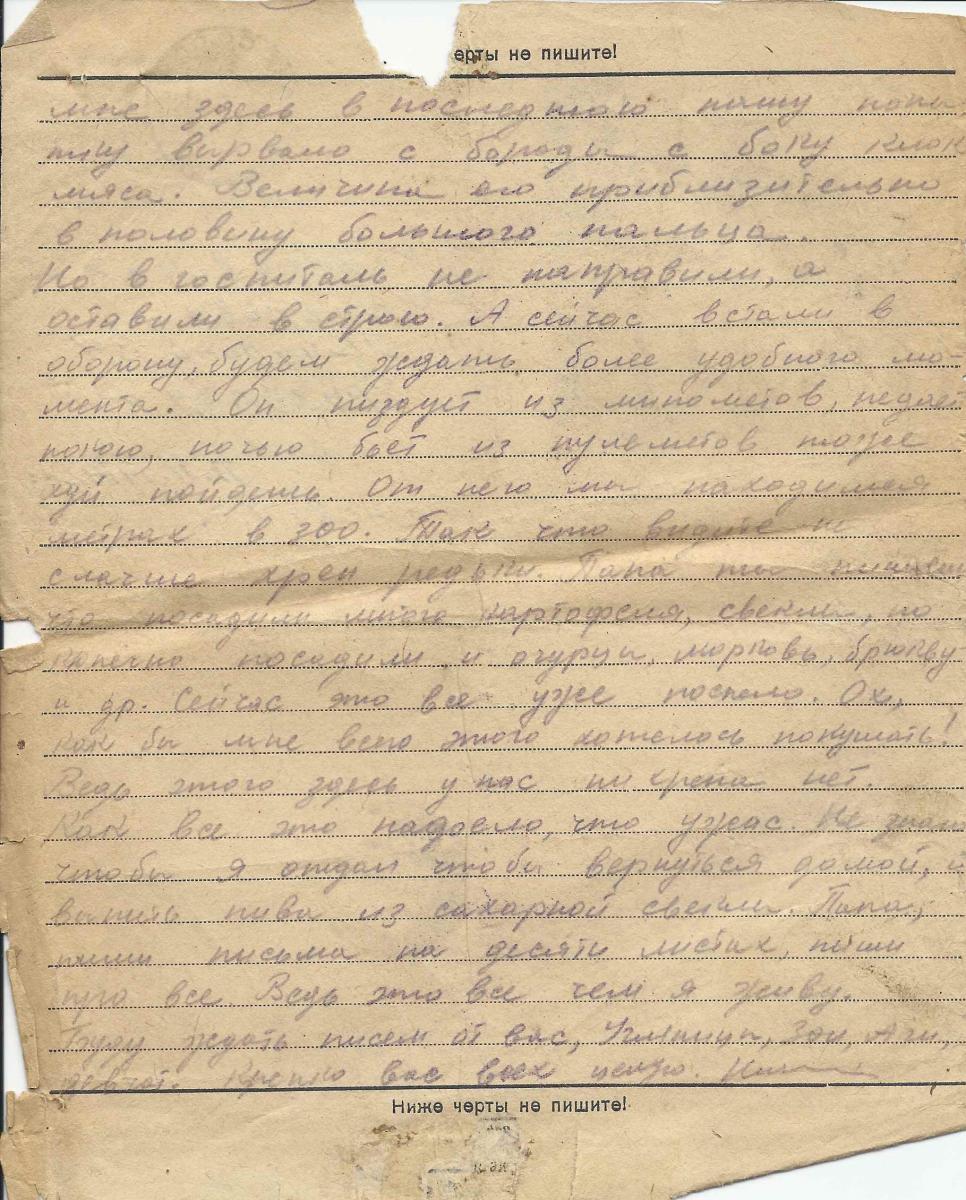 ерты не пишите!
мне здесь в последнюю нашу попы
тку вырвало с бороды с боку клок
мяса. Величина его приблизительно
в половину большого пальца.
Но в госпиталь не направили, а
оставили в строю. А сейчас встали в
оборону, будем ждать более удобного мо-
мента. Он пиздует из минометов, недает
покою, ночью бьет из пулеметов тоже
пойдешь. От него мы находимся
метрах в 300. Так что видите не
слаще хрен редьки. Папа ты пишешь
что посадили много картофеля, свеклы, но
конечно посадили и огурцы, морковь, брюкву
и др. Сейчас это все уже поспело. Ох,
как бы мне всего этого хотелось покушать!
Ведь этого здесь у нас ни хрена нет.
Как все это надоело, что ужас. Не знаю
чтобы я отдал чтобы вернуться домой, и
выпить пива из сахарной свеклы. Папа,
пиши письма на десяти листах, пиши
про все. Ведь это все чем я живу.
Буду ждать писем от вас, Зои, Ани,
девчат. Крепко вас всех целую.
Ниже черты не пишите!